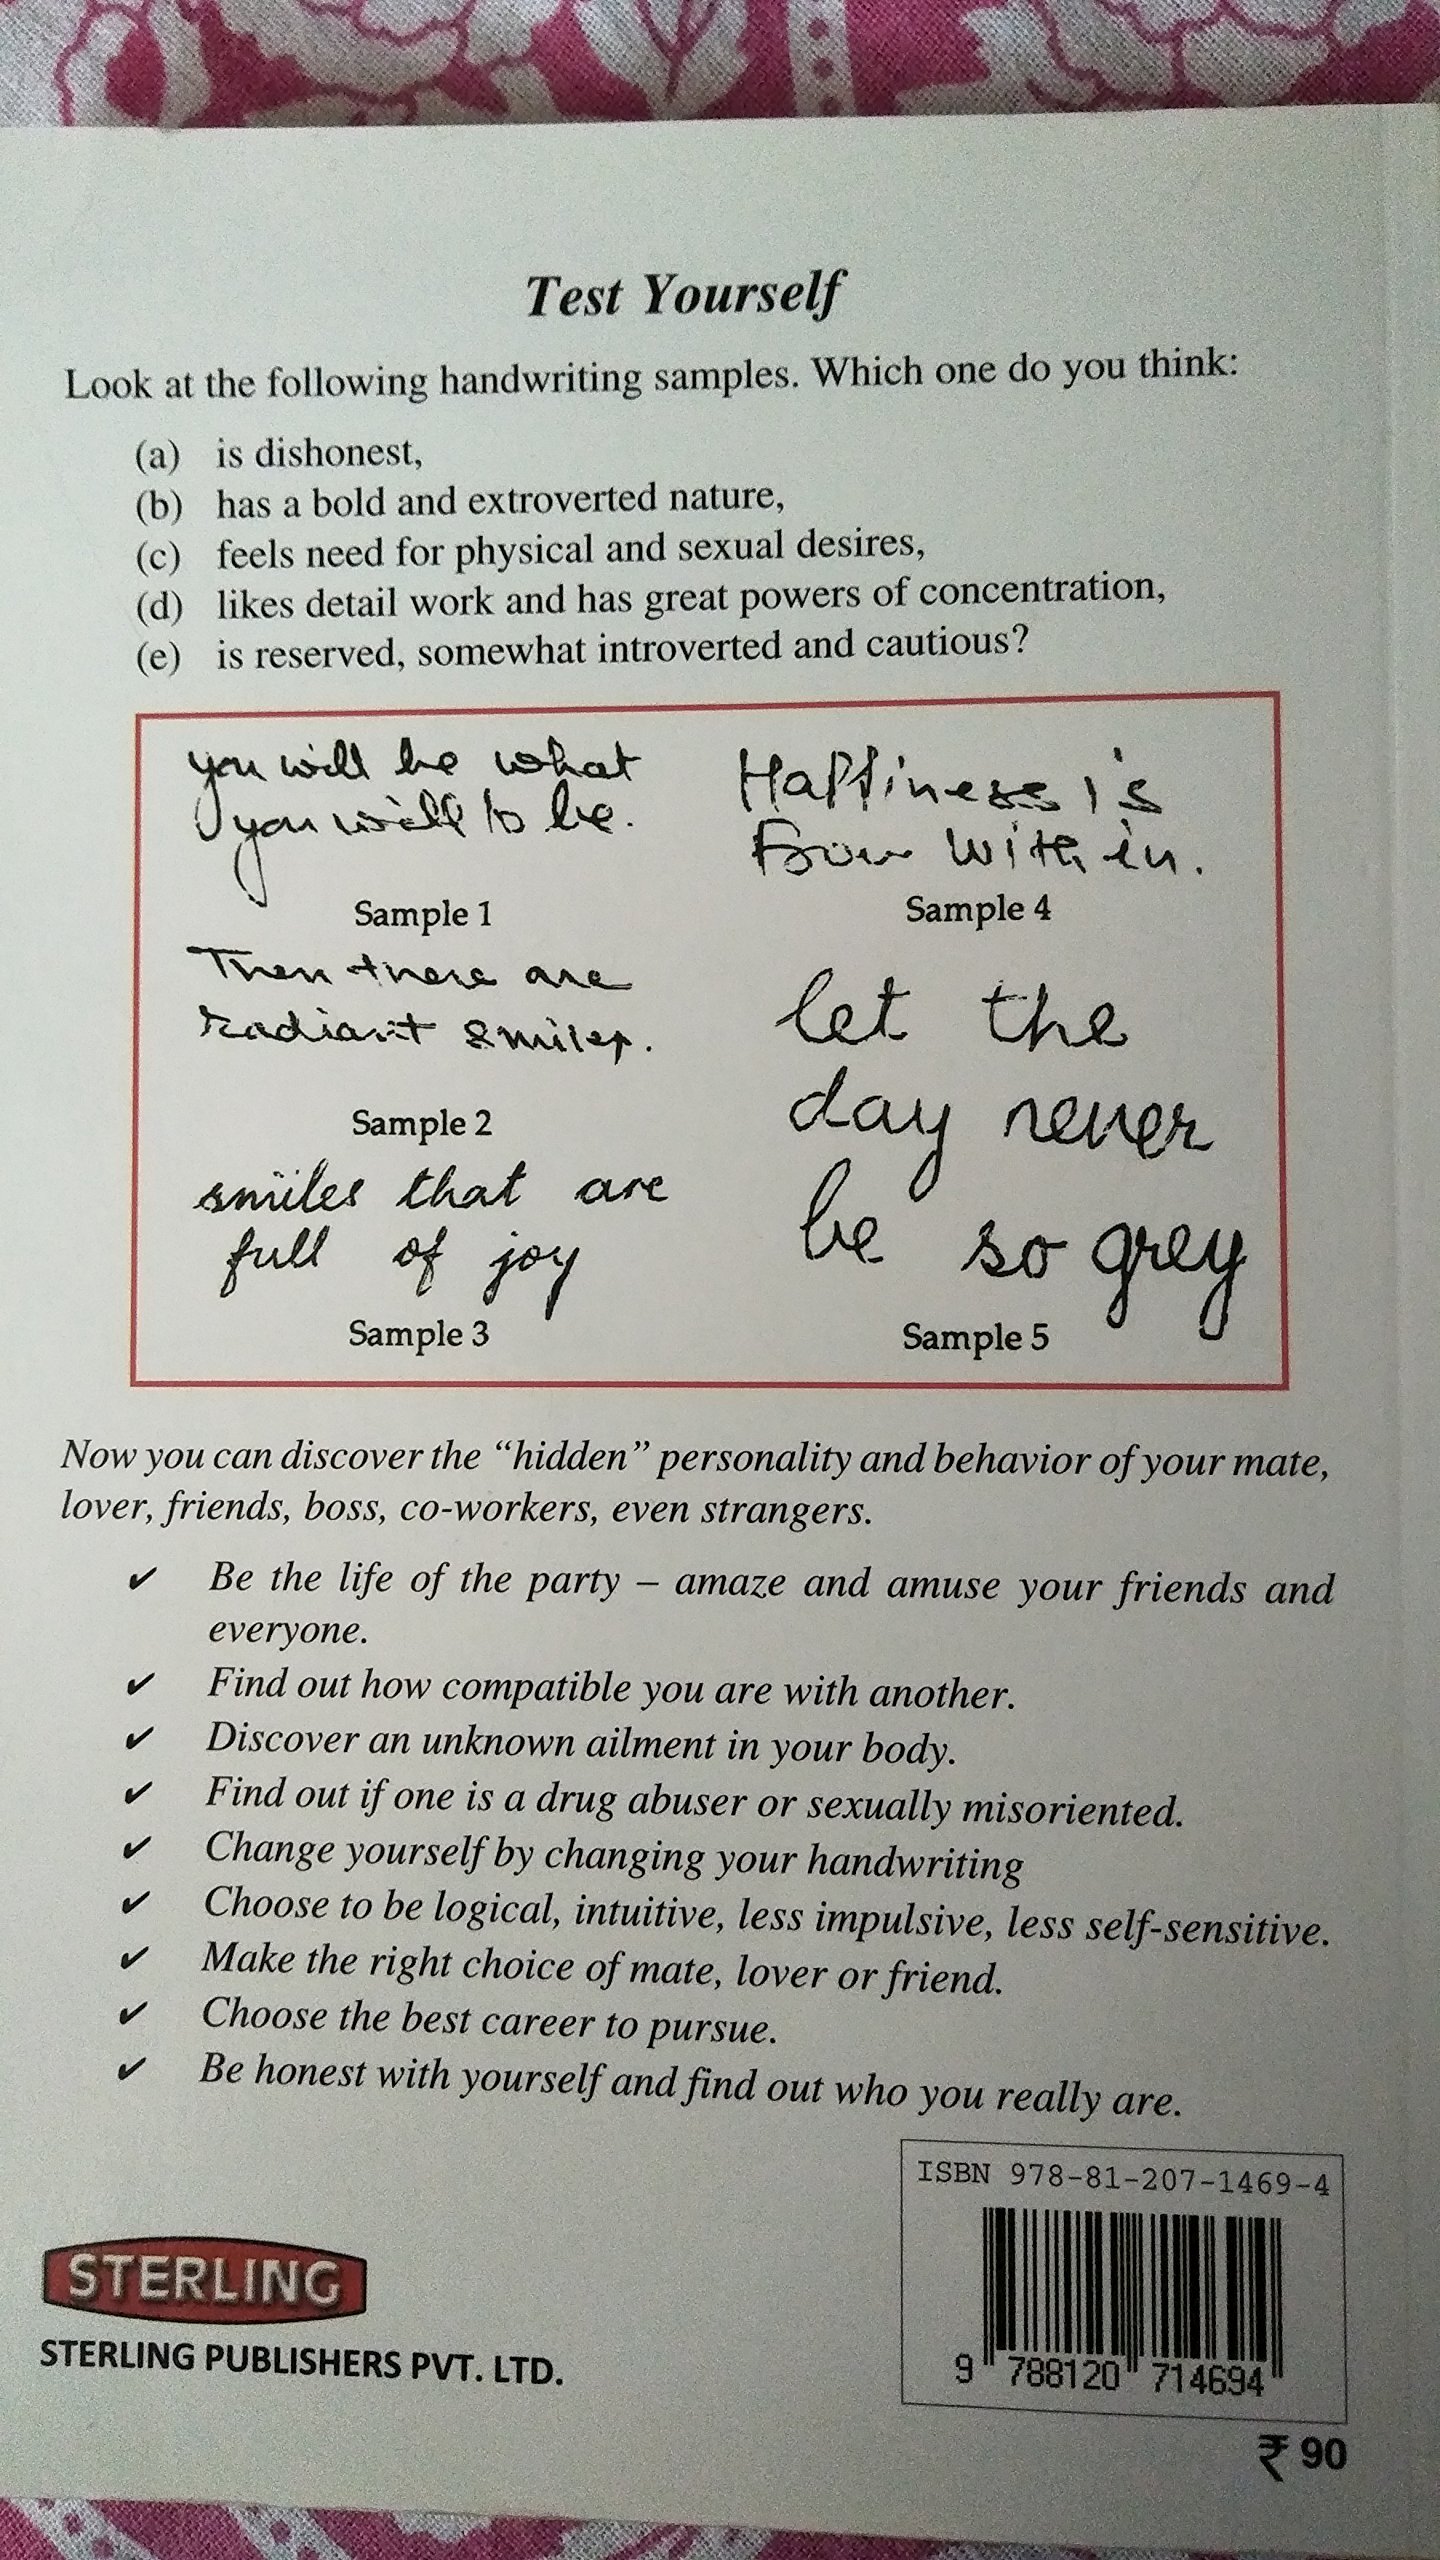 Test Yourself
Look at the following handwriting samples. Which one do you think:
(a) is dishonest,
(b) has a bold and extroverted nature,
(c) feels need for physical and sexual desires,
(d) likes detail work and has great powers of concentration,
(e) is reserved, somewhat introverted and cautious?
you will be what
you will to be.
Sample 1
Then there are
radiant smiles.
Sample 2
smiles that are
full of joy
Sample 3
Happiness is
From within.
Sample 4
let the
day never
be so grey
Sample 5
Now you can discover the “hidden” personality and behavior of your mate,
lover, friends, boss, co-workers, even strangers.
✔ Be the life of the party – amaze and amuse your friends and
everyone.
✔ Find out how compatible you are with another.
✔ Discover an unknown ailment in your body.
✔ Find out if one is a drug abuser or sexually misoriented.
✔ Change yourself by changing your handwriting
✔ Choose to be logical, intuitive, less impulsive, less self-sensitive.
✔ Make the right choice of mate, lover or friend.
✔ Choose the best career to pursue.
✔ Be honest with yourself and find out who you really are.
ISBN 978-81-207-1469-4
9 788120 714694
₹ 90
STERLING
STERLING PUBLISHERS PVT. LTD.